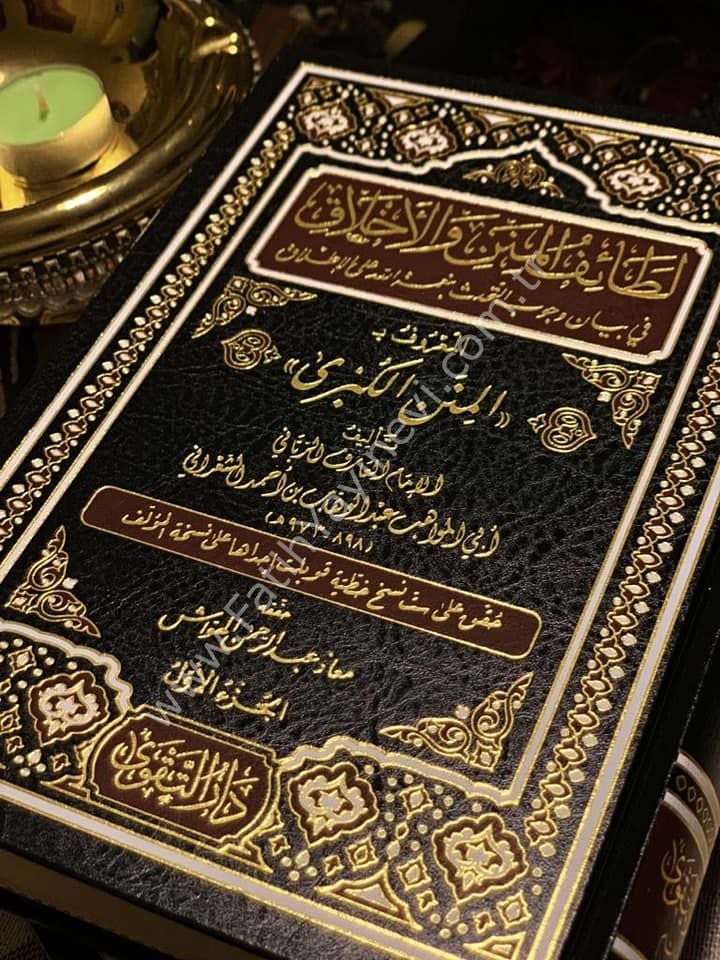 لطائف المنن والأخلاق
في بيان وجوب التحدث بنعمة الله على الإطلاق
المعروف بـ
«المنن الكبرى»
تأليف
الإمام العارف الرباني
أبي المواهب عبد الوهاب بن أحمد الشعراني
(٨٩٨ - ٩٧٣هـ)
حقق على ست نسخ خطية قوبلت إحداها على نسخة المؤلف
حققه
معاذ عبد الرحمن
الجزء الأول
دار التقوى
www.Fatihyayinevi.com.tr